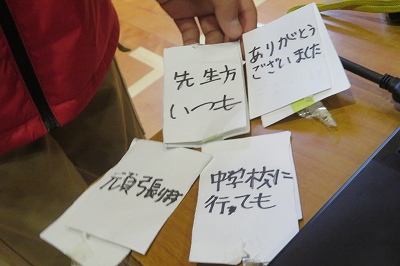 先生方
いつも
ありがとう
ございました
中学校に
行っても
頑張ります